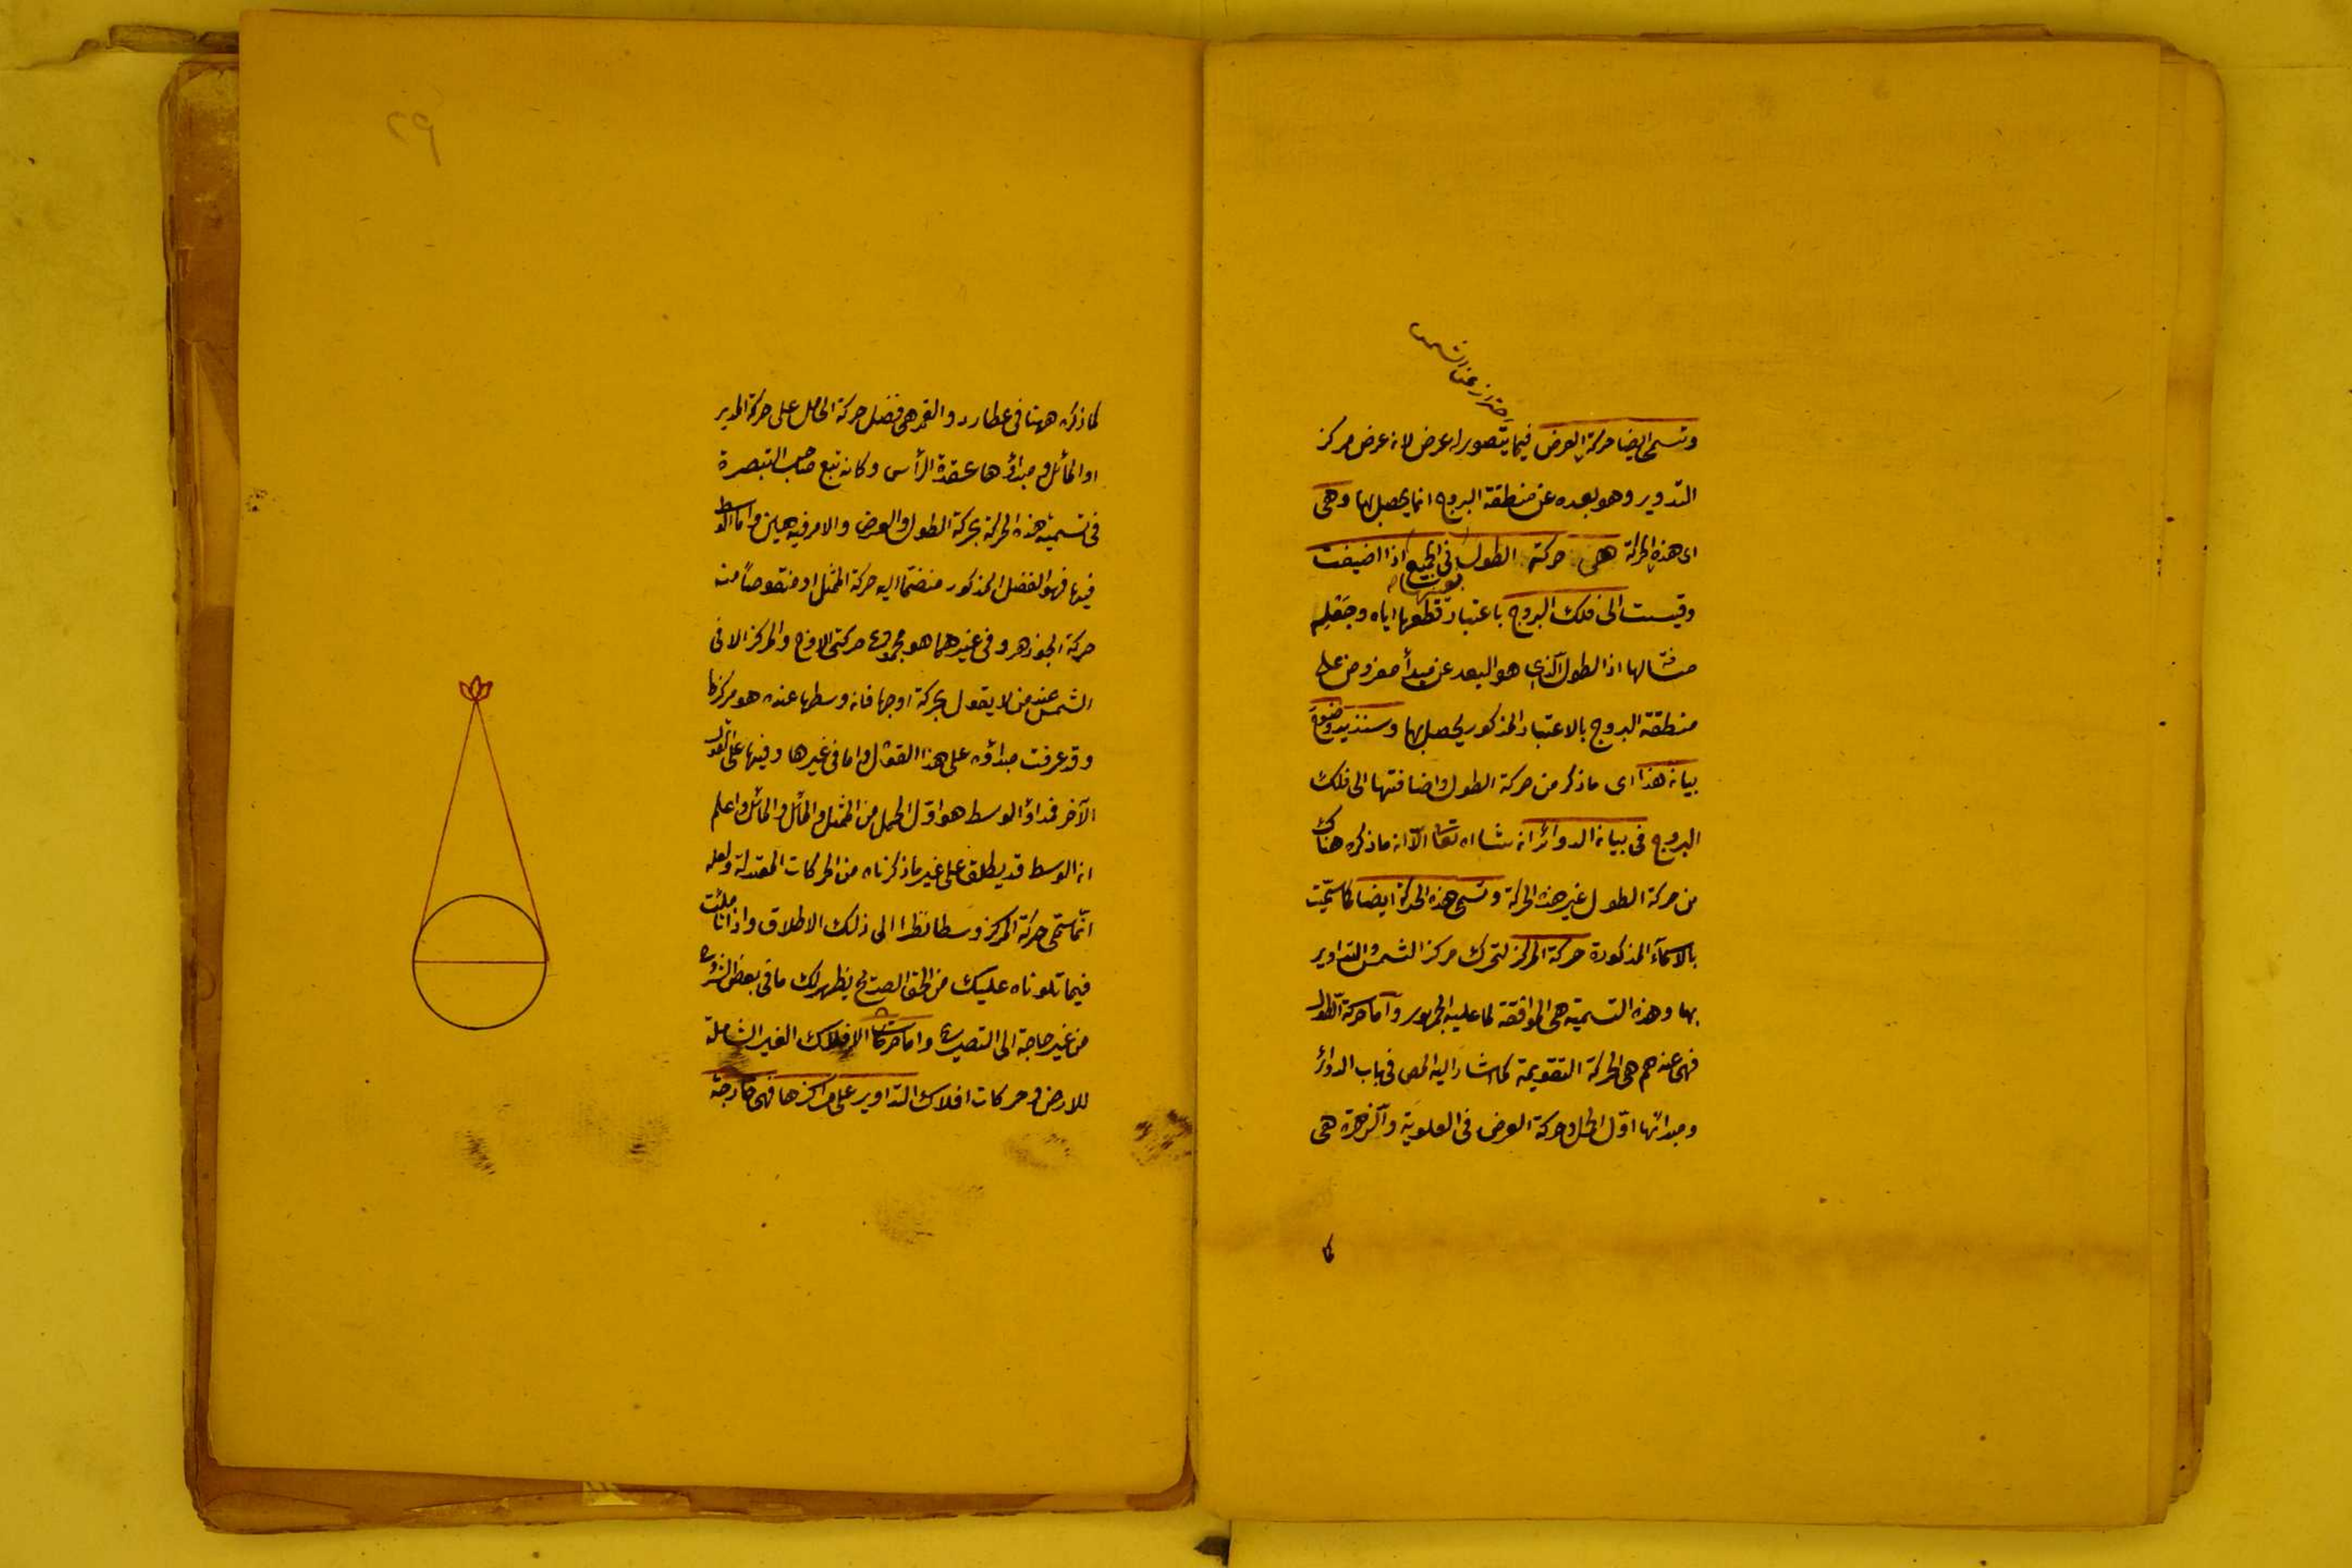 احتراز عن الشمس
وتسمى ايضا حركة العرض فيما يتصور له عرض لان عرض مركز
التدوير وهو بعده عن منطقة البروج انما يحصل بها وهى
اى هذه الحركة هى حركة الطول فى الجميع اذا اضيفت
وقيست الى فلك البروج باعتبار قطعها اياه وجعله
مسافة لها اذ الطول الذى هو البعد عن مبدأ مفروض على
منطقة البروج بالاعتبار المذكور يحصل بها وسنزيد وضوح
بيان هذا اى ما ذكر من حركة الطول واضافتها الى فلك
البروج فى بيان الدوائر ان شاء اه تعا الا ان ما ذكره هناك
من حركة الطول غير هذه الحركة وتسمى هذه الحركة ايضا كما سميت
بالاسمآء المذكورة حركة المركز لتحرك مركز الشمس والتداوير
بها وهذه التسمية هى الموافقة لما عليه الجمهور وآما حركة الطول
فهى عندهم هى الحركة التقويمية كما اشار اليه المص فى باب الدوائر
ومبدائها اول الحمل وحركة العرض فى العلوية والزهرة هى
كما
٢٩
كما ذكره ههنا فى عطارد والقمر هى فضل حركة الحامل على حركة المدير
او المائل ومبدأوها عقدة الرأس وكانه تبع صاحب التبصرة
فى تسمية هذه الحركة بحركة الطول والعرض والامر فيه هين واما الوسط
فيها فهو الفضل المذكور منضما اليه حركة الممثل او منقوصاً منه
حركة الجوزهر وفى غيرهما هو مجموع حركتى الاوج والمركز الا فى
الشمس عند من لا يقول بحركة اوجها فان وسطها عنده هو مركزها
وقد عرفت مبدأوه على هذا القول واما فى غيرها وفيها على القول
الآخر فمبدأو الوسط هو اول الحمل من الممثل والمائل والمائل واعلم
ان الوسط قد يطلق على غير ما ذكرناه من الحركات المعتدلة ولعله
انما سمى حركة المركز وسطا نظرا الى ذلك الاطلاق واذا تأملت
فيما تلوناه عليك من الحق الصريح يظهر لك ما فى بعض الشروح
من غير حاجة الى التصريح واما حركات الافلاك الغير الشاملة
للارض وحركات افلاك التداوير على مراكزها فهى خارجة